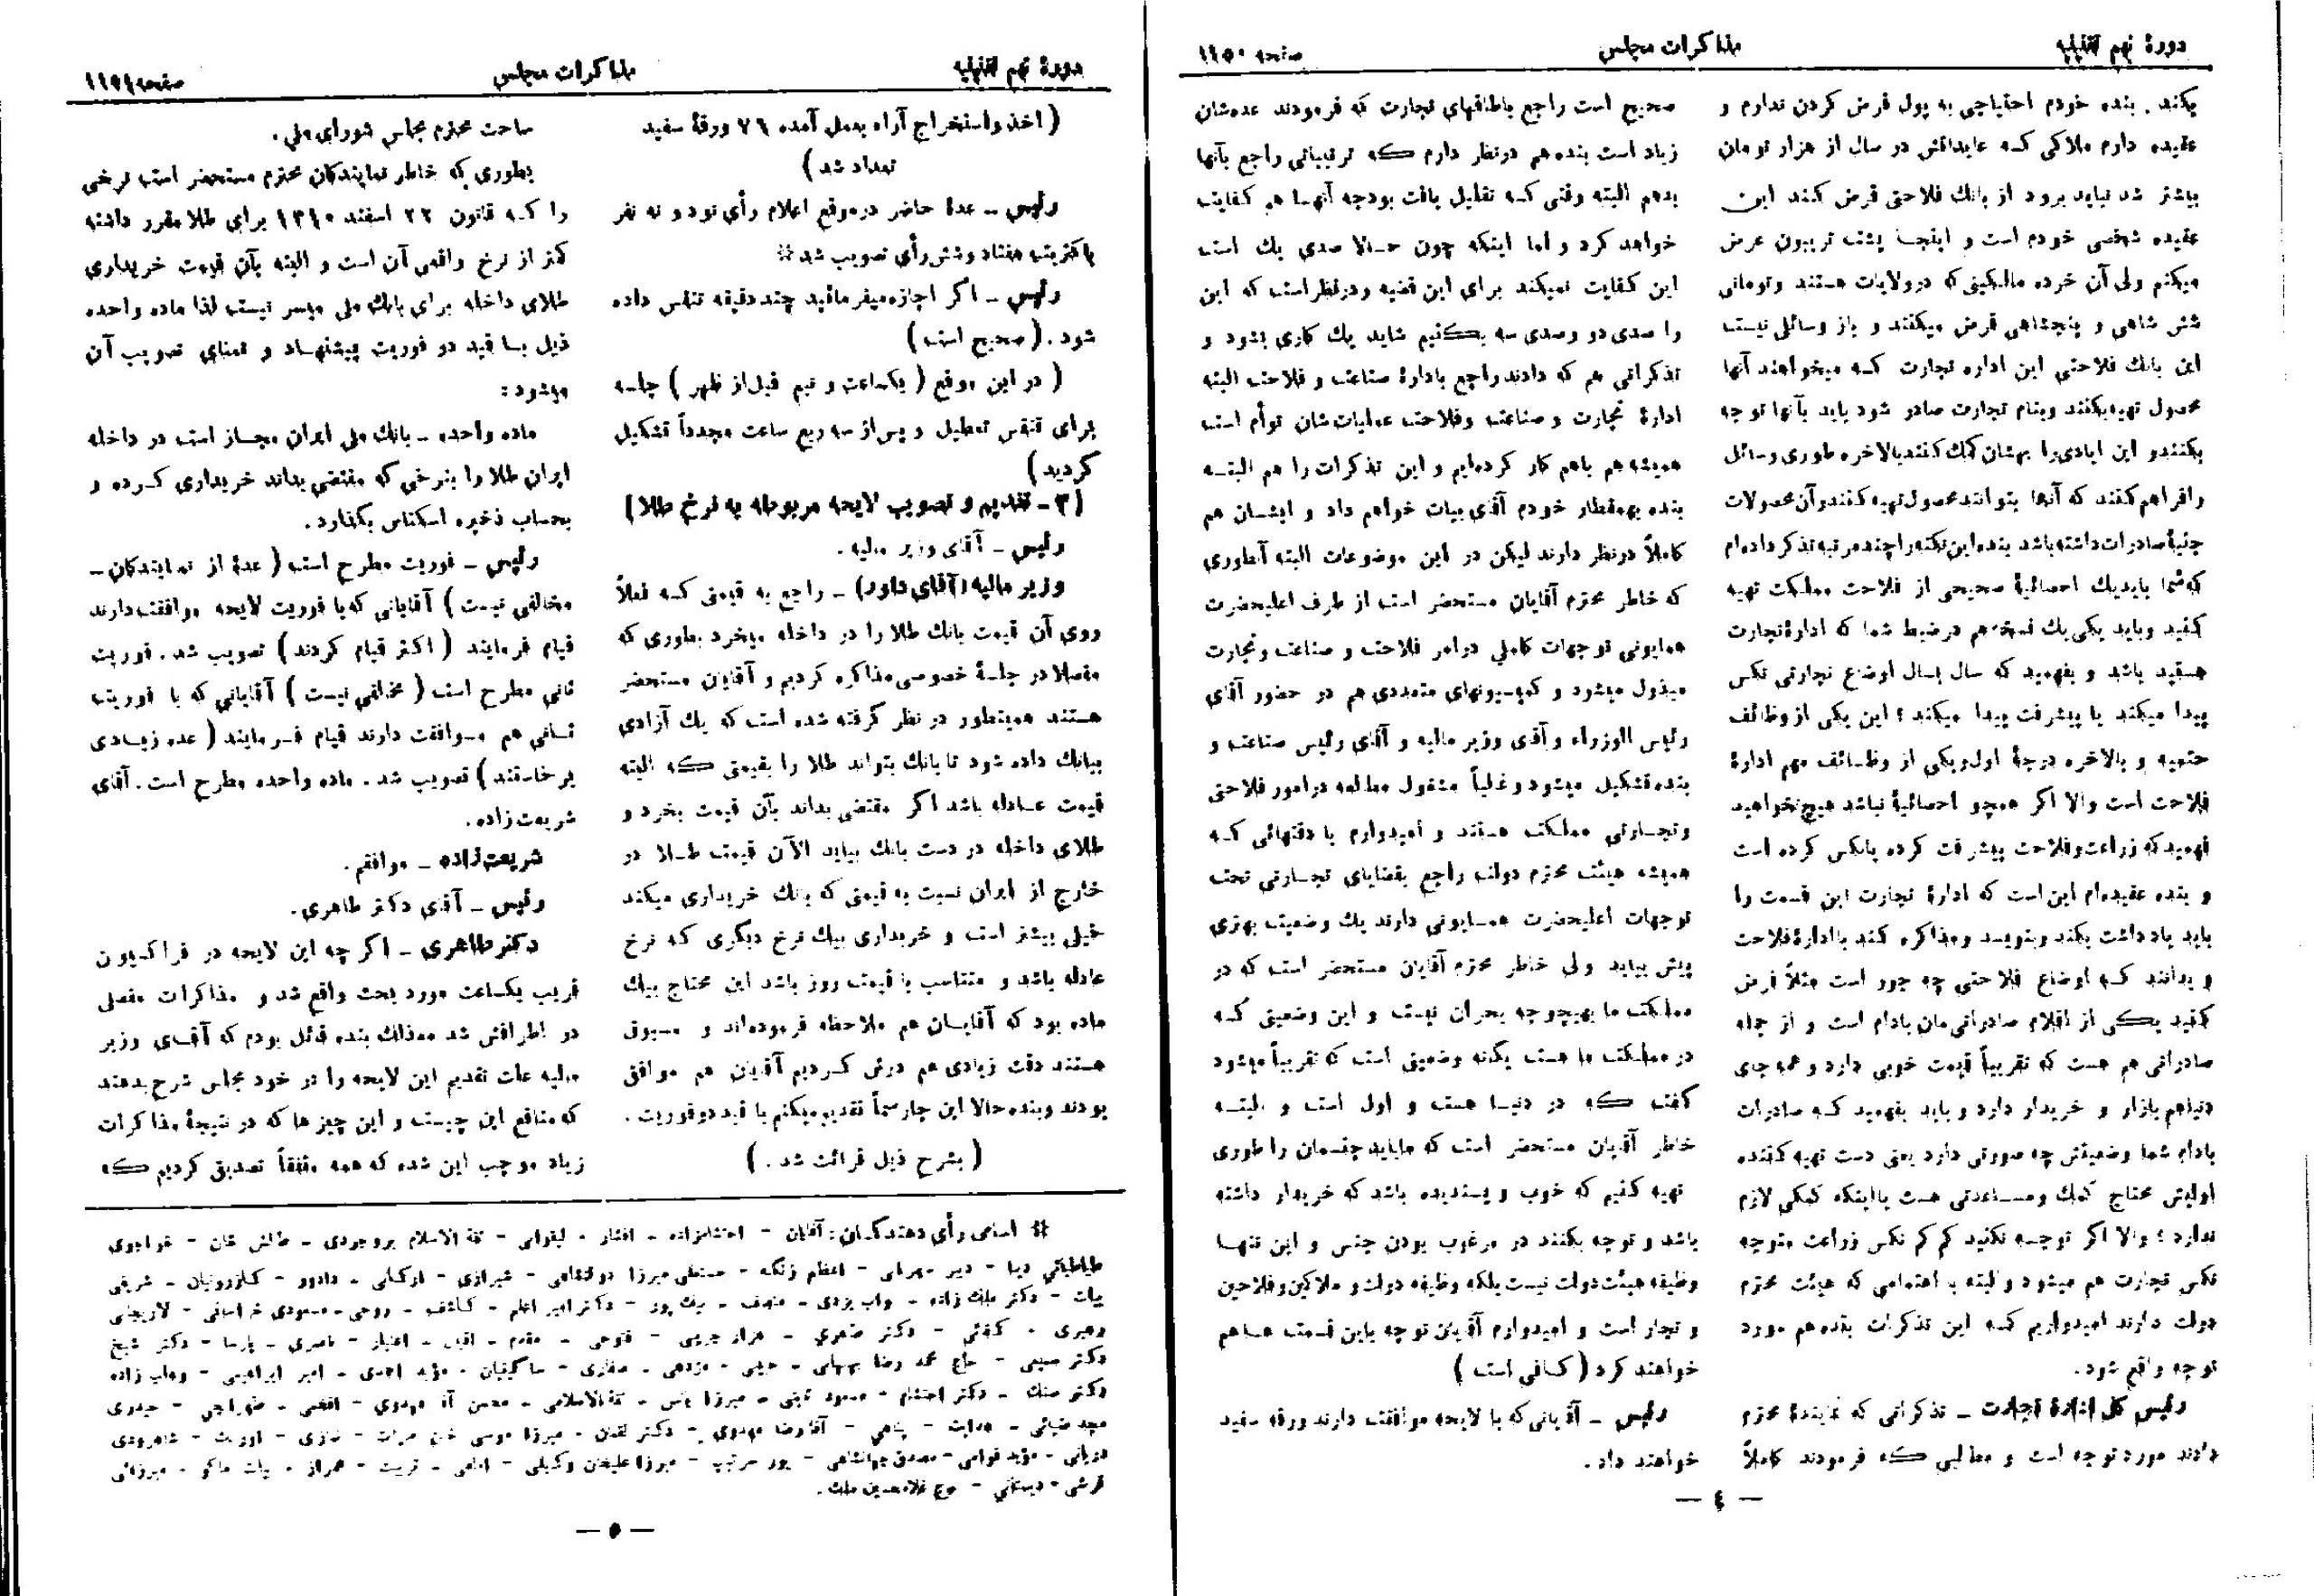 دورهٔ نهم تقنینیه
مذاکرات مجلس
صفحه ۱۱۵۰
بکند . بنده خودم احتیاجی به پول قرض کردن ندارم و
عقیده دارم ملاکی که عایداتش در سال از هزار تومان
بیشتر شد نباید برود از بانك فلاحتی قرض کند این
عقیده شخصی خودم است و اینجا پشت تریبون عرض
میکنم ولی آن خرده مالکینی که در ولایات هستند و تومانی
شش شاهی و پنجشاهی قرض میکنند و باز وسائلی نیست
این بانك فلاحتی این اداره تجارت که میخواهند آنها
محصول تهیه بکنند و بنام تجارت صادر شود باید بآنها توجه
بکنند و این ایادی را بهشان کمك کنند بالاخره طوری وسائل
را فراهم کنند که آنها بتوانند محصول تهیه کنند و آن محصولات
جنبهٔ صادرات داشته باشد بنده این نکته را چند مرتبه تذکر داده‌ام
که شما باید یك احصائیهٔ صحیحی از فلاحت مملکت تهیه
کنید و باید یکی یك نسخه هم در ضبط شما که ادارهٔ تجارت
هستید باشد و بفهمید که سال بسال اوضاع تجارتی نکس
پیدا میکند یا پیشرفت پیدا میکند ؛ این یکی از وظائف
حتمیه و بالاخره درجهٔ اول و یکی از وظائف مهم ادارهٔ
فلاحت است والا اگر همچو احصائیهٔ نباشد هیچ نخواهید
فهمید که زراعت و فلاحت پیشرفت کرده یا نکس کرده است
و بنده عقیده‌ام این است که ادارهٔ تجارت این قسمت را
باید یادداشت بکند و بنویسد و مذاکره کند با ادارهٔ فلاحت
و بدانند که اوضاع فلاحتی چه جور است مثلاً فرض
کنید یکی از اقلام صادراتی‌مان بادام است و از جمله
صادراتی هم هست که تقریباً قیمت خوبی دارد و همه جای
دنیا هم بازار و خریدار دارد و باید بفهمید که صادرات
بادام شما وضعیتش چه صورتی دارد یعنی دست تهیه کننده
اولیش محتاج کمك و مساعدتی هست یا اینکه کمکی لازم
ندارد ؛ والا اگر توجه نکنید کم کم نکس زراعت متوجه
نکس تجارت هم میشود و البته با اهتمامی که هیئت محترم
دولت دارند امیدواریم که این تذکرات بنده هم مورد
توجه واقع شود.
رئیس کل ادارهٔ تجارت ـ تذکراتی که نمایندهٔ محترم
دادند مورد توجه است و مطالبی که فرمودند کاملاً
صحیح است راجع باطاقهای تجارت که فرمودند عده‌شان
زیاد است بنده هم در نظر دارم که ترتیباتی راجع بآنها
بدهم البته وقتی که تقلیل یافت بودجه آنها هم کفایت
خواهد کرد و اما اینکه چون حالا صدی یك است
این کفایت نمیکند برای این قضیه و در نظر است که این
را صدی دو و صدی سه بکنیم شاید یك کاری بشود و
تذکراتی هم که دادند راجع بادارهٔ صناعت و فلاحت البته
ادارهٔ تجارت و صناعت و فلاحت عملیات‌شان توأم است
همیشه هم باهم کار کرده‌ایم و این تذکرات را هم البته
بنده بهمقطار خودم آقای بیات خواهم داد و ایشان هم
کاملاً در نظر دارند لیکن در این موضوعات البته آنطوری
که خاطر محترم آقایان مستحضر است از طرف اعلیحضرت
همایونی توجهات کاملی در امر فلاحت و صناعت و تجارت
مبذول میشود و کمیسیونهای متعددی هم در حضور آقای
رئیس الوزراء و آقای وزیر مالیه و آقای رئیس صناعت و
بنده تشکیل میشود و غالباً مشغول مطالعه در امور فلاحتی
و تجارتی مملکت هستند و امیدوارم با دقتهائی که
همیشه هیئت محترم دولت راجع بقضایای تجارتی تحت
توجهات اعلیحضرت همایونی دارند یك وضعیت بهتری
پیش بیاید ولی خاطر محترم آقایان مستحضر است که در
مملکت ما بهیچوجه بحران نیست و این وضعیتی که
در مملکت ما هست یگانه وضعیتی است که تقریباً میشود
گفت که در دنیا هست و اول است و البته
خاطر آقایان مستحضر است که ما باید جنسمان را طوری
تهیه کنیم که خوب و پسندیده باشد که خریدار داشته
باشد و توجه بکنند در مرغوب بودن جنس و این تنها
وظیفه هیئت دولت نیست بلکه وظیفه دولت و ملاکین و فلاحین
و تجار است و امیدوارم آقایان توجه باین قسمت ها هم
خواهند کرد ( کافی است )
رئیس ـ آقایانی که با لایحه موافقت دارند ورقه سفید
خواهند داد .
— ٤ —
دورهٔ نهم تقنینیه
مذاکرات مجلس
صفحه ۱۱۵۱
( اخذ و استخراج آراء بعمل آمده ۷٦ ورقهٔ سفید
تعداد شد )
رئیس ـ عدهٔ حاضر در موقع اعلام رأی نود و نه نفر
باکثریت هفتاد و شش رأی تصویب شد *
رئیس ـ اگر اجازه میفرمائید چند دقیقه تنفس داده
شود . ( صحیح است )
( در این موقع ( یکساعت و نیم قبل از ظهر ) جلسه
برای تنفس تعطیل و پس از سه ربع ساعت مجدداً تشکیل
گردید )
[ ۳ ـ تقدیم و تصویب لایحه مربوطه به نرخ طلا ]
رئیس ـ آقای وزیر مالیه .
وزیر مالیه (آقای داور) ـ راجع به قیمتی که فعلاً
روی آن قیمت بانك طلا را در داخله میخرد بطوری که
مفصلا در جلسهٔ خصوصی مذاکره کردیم و آقایان مستحضر
هستند همینطور در نظر گرفته شده است که یك آزادی
ببانك داده شود تا بانك بتواند طلا را بقیمتی که البته
قیمت عادله باشد اگر مقتضی بداند بآن قیمت بخرد و
طلای داخله در دست بانك بیاید الآن قیمت طلا در
خارج از ایران نسبت به قیمتی که بانك خریداری میکند
خیلی بیشتر است و خریداری بیك نرخ دیگری که نرخ
عادله باشد و متناسب با قیمت روز باشد این محتاج بیك
ماده بود که آقایان هم ملاحظه فرموده‌اند و مسبوق
هستند دقت زیادی هم درش کردیم آقایان هم موافق
بودند و بنده حالا این جا رسماً تقدیم میکنم با قید دو فوریت .
( بشرح ذیل قرائت شد . )
ساحت محترم مجلس شورای ملی .
بطوری که خاطر نمایندگان محترم مستحضر است نرخی
را که قانون ۲۲ اسفند ۱۳۱۰ برای طلا مقرر داشته
کمتر از نرخ واقعی آن است و البته بآن قیمت خریداری
طلای داخله برای بانك ملی میسر نیست لذا ماده واحده
ذیل با قید دو فوریت پیشنهاد و تمنای تصویب آن
میشود :
ماده واحده ـ بانك ملی ایران مجاز است در داخله
ایران طلا را بنرخی که مقتضی بداند خریداری کرده و
بحساب ذخیره اسکناس بگذارد .
رئیس ـ فوریت مطرح است ( عدهٔ از نمایندگان ـ
مخالفی نیست ) آقایانی که با فوریت لایحه موافقت دارند
قیام فرمایند ( اکثر قیام کردند ) تصویب شد . فوریت
ثانی مطرح است ( مخالفی نیست ) آقایانی که با فوریت
ثانی هم موافقت دارند قیام فرمایند ( عده زیادی
برخاستند ) تصویب شد . ماده واحده مطرح است . آقای
شریعت زاده .
شریعت‌زاده ـ موافقم .
رئیس ـ آقای دکتر طاهری .
دکتر طاهری ـ اگر چه این لایحه در فراکسیون
قریب یکساعت مورد بحث واقع شد و مذاکرات مفصلی
در اطرافش شد معذلك بنده قائل بودم که آقای وزیر
مالیه علت تقدیم این لایحه را در خود مجلس شرح بدهند
که منافع این چیست و این چیز ها که در نتیجهٔ مذاکرات
زیاد موجب این شده که همه متفقاً تصدیق کردیم که
* اسامی رأی دهندگان : آقایان - احتشامزاده - افشار - لیقوانی - ثقة الاسلام بروجردی - طالش خان - خواجوی
طباطبائی دیبا - دبیر سهرابی - اعظم زنگنه - حسنعلی میرزا دولتشاهی - شیرازی - اورکی - دادور - کازرونیان - شریفی
بیات - دکتر ملك زاده - نواب یزدی - منصف - بیك پور - دکتر امیر اعلم - کاشف - روحی - مسعودی خراسانی - لاریجانی
رهبری - کفائی - دکتر طاهری - هزار جریبی - فتوحی - مقدم - اقبال - اعتبار - ناصری - پارسا - دکتر شیخ
دکتر سمیعی - حاج محمد رضا بهبهانی - حبیبی - مژدهی - صفاری - ساگینیان - مؤید احمدی - امیر ابراهیمی - وهاب زاده
دکتر سنك - دکتر احتشام - مسعود ثابتی - میرزا یانس - ثقة‌الاسلامی - محسن آقا مهدوی - افخمی - طهرانچی - حیدری
مجد ضیائی - هدایت - پناهی - آقا رضا مهدوی - دکتر لقمان - میرزا موسی خان مرآت - نمازی - اورنك - شاهرودی
دربانی - مؤید قوامی - مصدق جهانشاهی - پور سرتیپ - میرزا علیخان وکیلی - امامی - تربیت - همراز - بیات ماکو - میرزائی
قرشی - دبستانی - حاج غلامحسین ملك .
— ٥ —